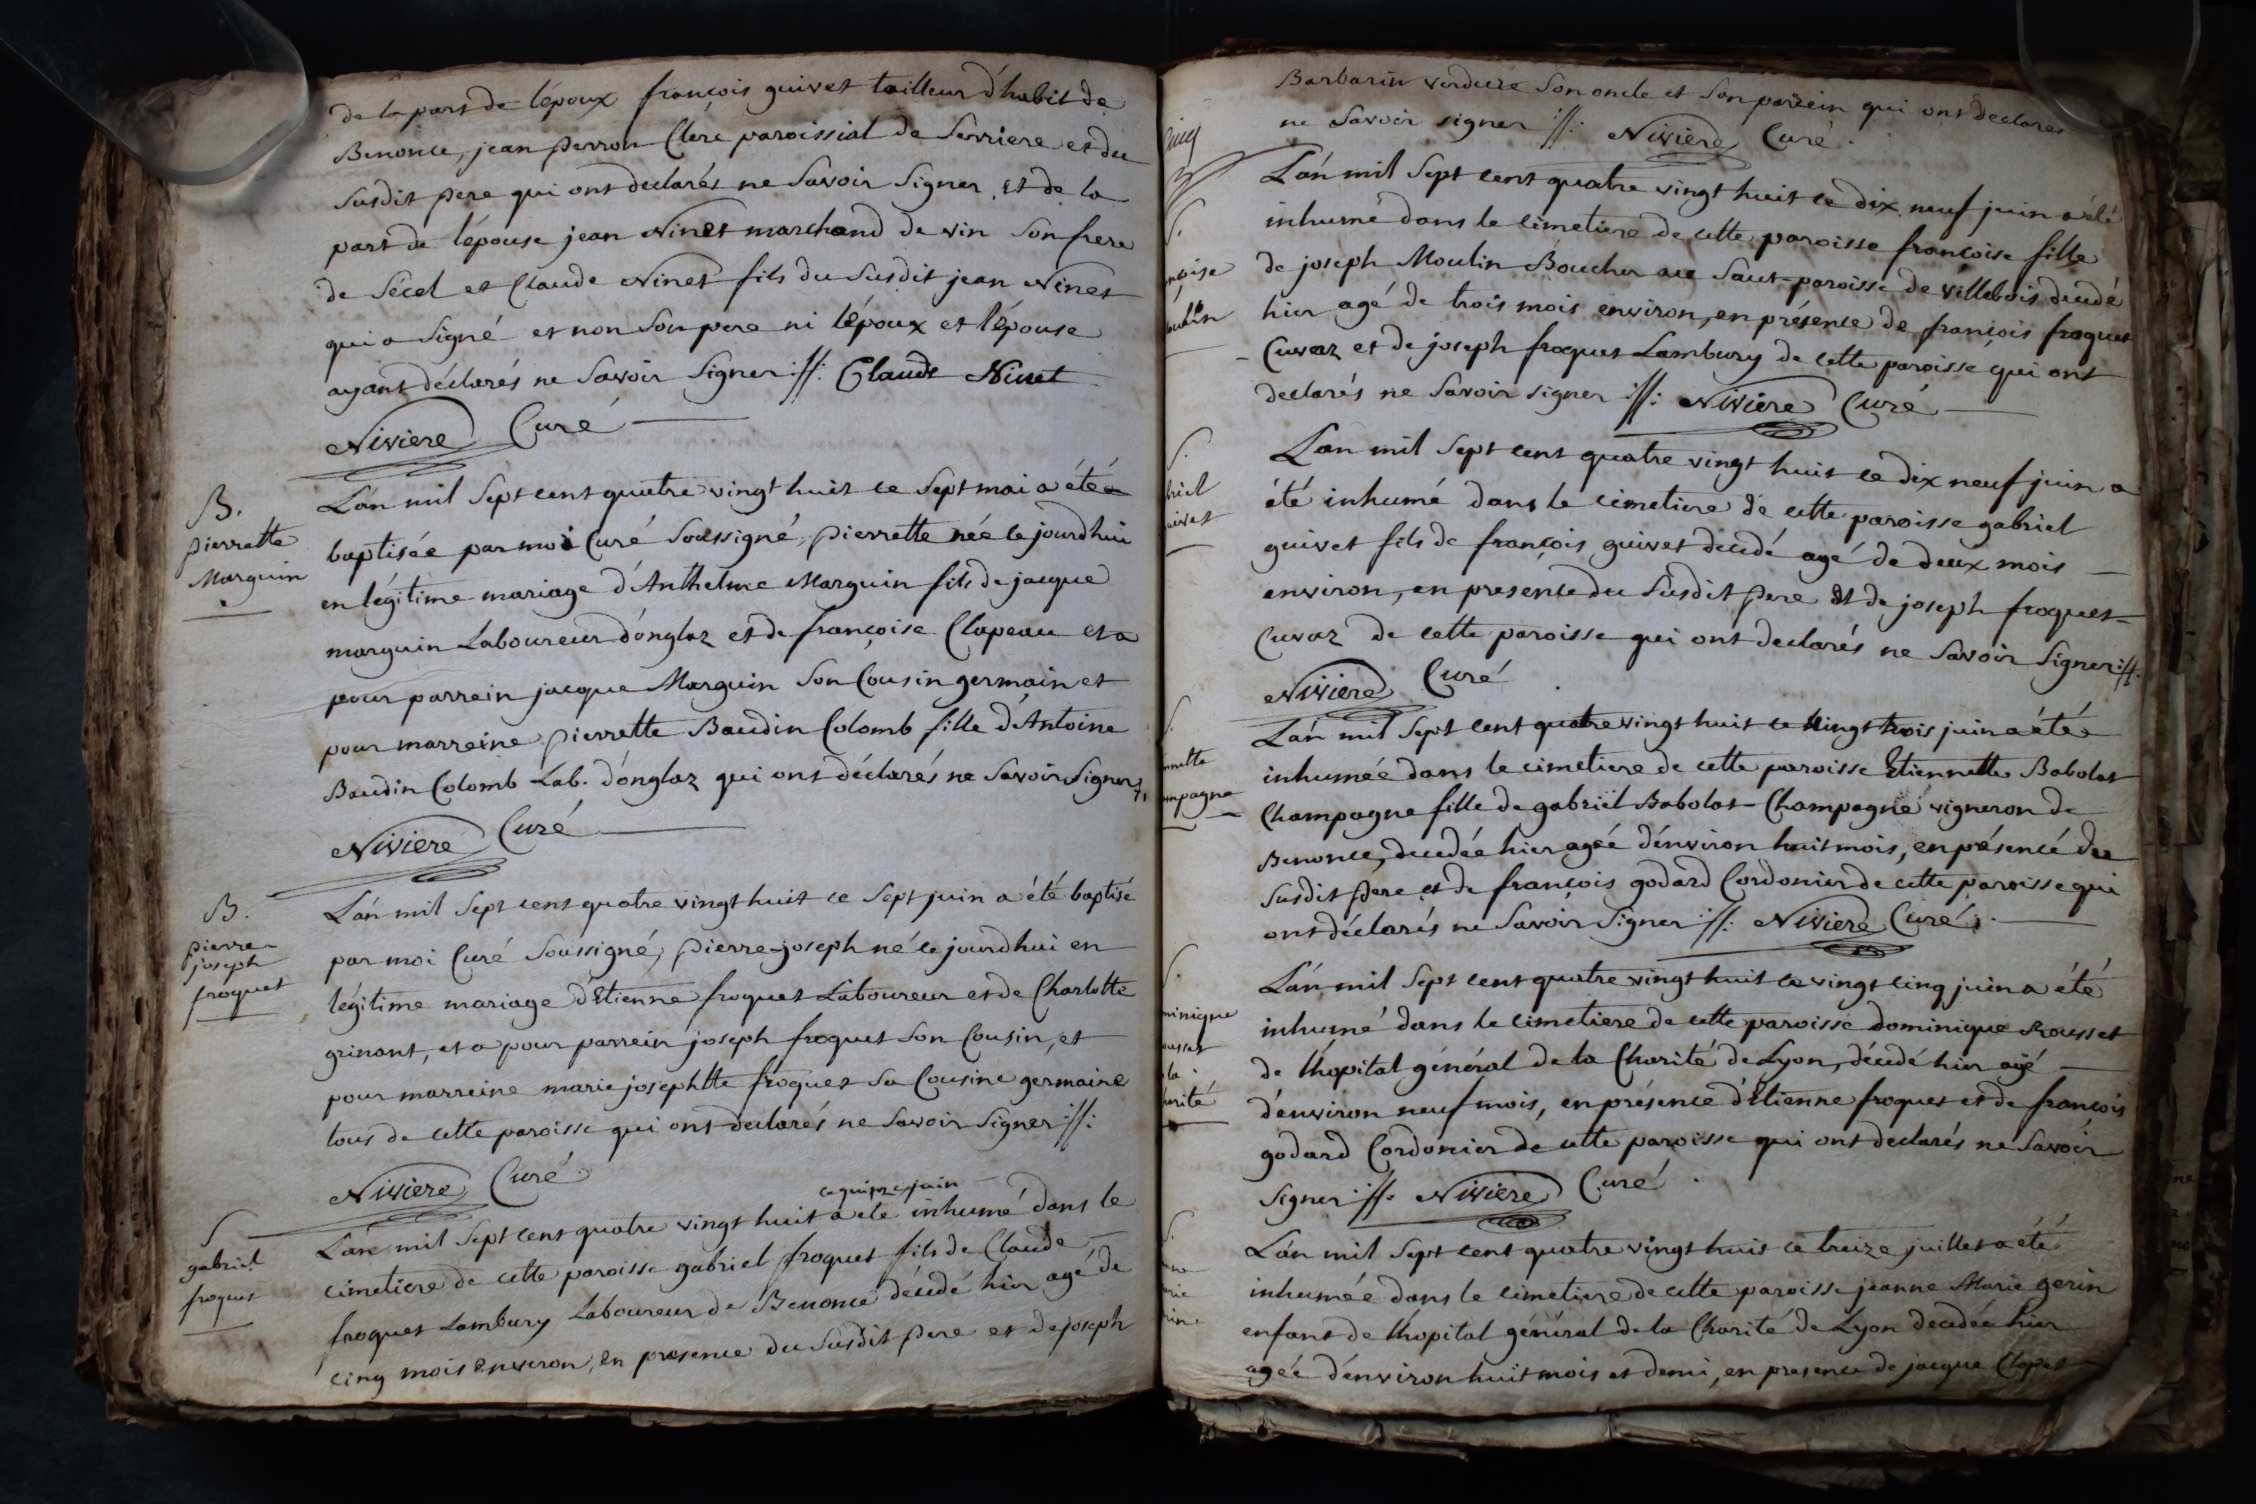 de la part de l'époux françois guivet tailleur d'habit de
Benonce, jean perron Clerc paroissial de Serriere et du
susdit pere qui ont declarés ne savoir signer, et de la
part de l'épouse jean Ninet marchand de vin son frere
de Sécel et Claude Ninet fils du susdit jean Ninet
qui a signé et non son pere ni l'époux et l'épouse
ayant déclarés ne savoir signer :/: Claude Ninet
Niviere Curé
B.
pierrette
Marguin
L'an mil sept cent quatre vingt huit ce sept mai a été
baptisée par moi Curé soussigné, pierrette née ce jourd'hui
en légitime mariage d'Anthelme Marguin fils de jacque
marguin Laboureur d'onglaz et de françoise Clapeau et a
pour parrein jacque Marguin son Cousin germain et
pour marreine pierrette Baudin Colomb fille d'Antoine
Baudin Colomb Lab. d'onglaz qui ont déclarés ne savoir signer
Niviere Curé
B.
pierre
joseph
froquet
L'an mil sept cent quatre vingt huit ce sept juin a été baptisé
par moi Curé soussigné, pierre-joseph né ce jourd'hui en
légitime mariage d'Etienne froquet Laboureur et de Charlotte
grinant, et a pour parrein joseph froquet son Cousin, et
pour marreine marie josephtte froquet sa Cousine germaine
tous de cette paroisse qui ont declarés ne savoir signer :/:
Niviere Curé
S
gabriel
froquet
ce quinze juin
L'an mil sept cent quatre vingt huit a été inhumé dans le
cimetiere de cette paroisse gabriel froquet fils de Claude
froquet Lambury Laboureur de Benonce décédé hier agé de
cinq mois environ, en presence du susdit pere et de joseph
Barbarin verdure son oncle et son parrein qui ont declarés
ne savoir signer :/: Niviere Curé.
S.
L'an mil sept cent quatre vingt huit ce dix neuf juin a été
inhumé dans le cimetiere de cette paroisse françoise fille
de joseph Moulin Boucher au Saut-paroisse de Villebois décédé
hier agé de trois mois environ, en présence de françois froquet
Cuvaz et de joseph froquet Lambury de cette paroisse qui ont
declarés ne savoir signer :/: Niviere Curé
S.
L'an mil sept cent quatre vingt huit ce dix neuf juin a
été inhumé dans le cimetiere de cette paroisse gabriel
guivet fils de françois guivet decedé agé de deux mois
environ, en presence du susdit pere et de joseph froquet
Cuvaz de cette paroisse qui ont declarés ne savoir signer :/:
Niviere Curé
L'an mil sept cent quatre vingt huit ce vingt trois juin a été
inhumée dans le cimetiere de cette paroisse Etiennette Babolat
Champagne fille de gabriel Babolat-Champagne vigneron de
Benonce, decedée hier agée d'environ huit mois, en présence du
susdit pere et de françois godard Cordonier de cette paroisse qui
ont déclarés ne savoir signer :/: Niviere Curé.
S.
L'an mil sept cent quatre vingt huit ce vingt cinq juin a été
inhumé dans le cimetiere de cette paroisse dominique Rousset
de l'hopital général de la Charité de Lyon, décédé hier agé
d'environ neuf mois, en présence d'Etienne froquet et de françois
godard Cordonier de cette paroisse qui ont declarés ne savoir
signer :/: Niviere Curé.
S.
L'an mil sept cent quatre vingt huit ce treize juillet a été
inhumée dans le cimetiere de cette paroisse jeanne Marie gerin
enfant de l'hopital général de la Charité de Lyon decedée hier
agée d'environ huit mois et demi, en presence de jacque Clapet